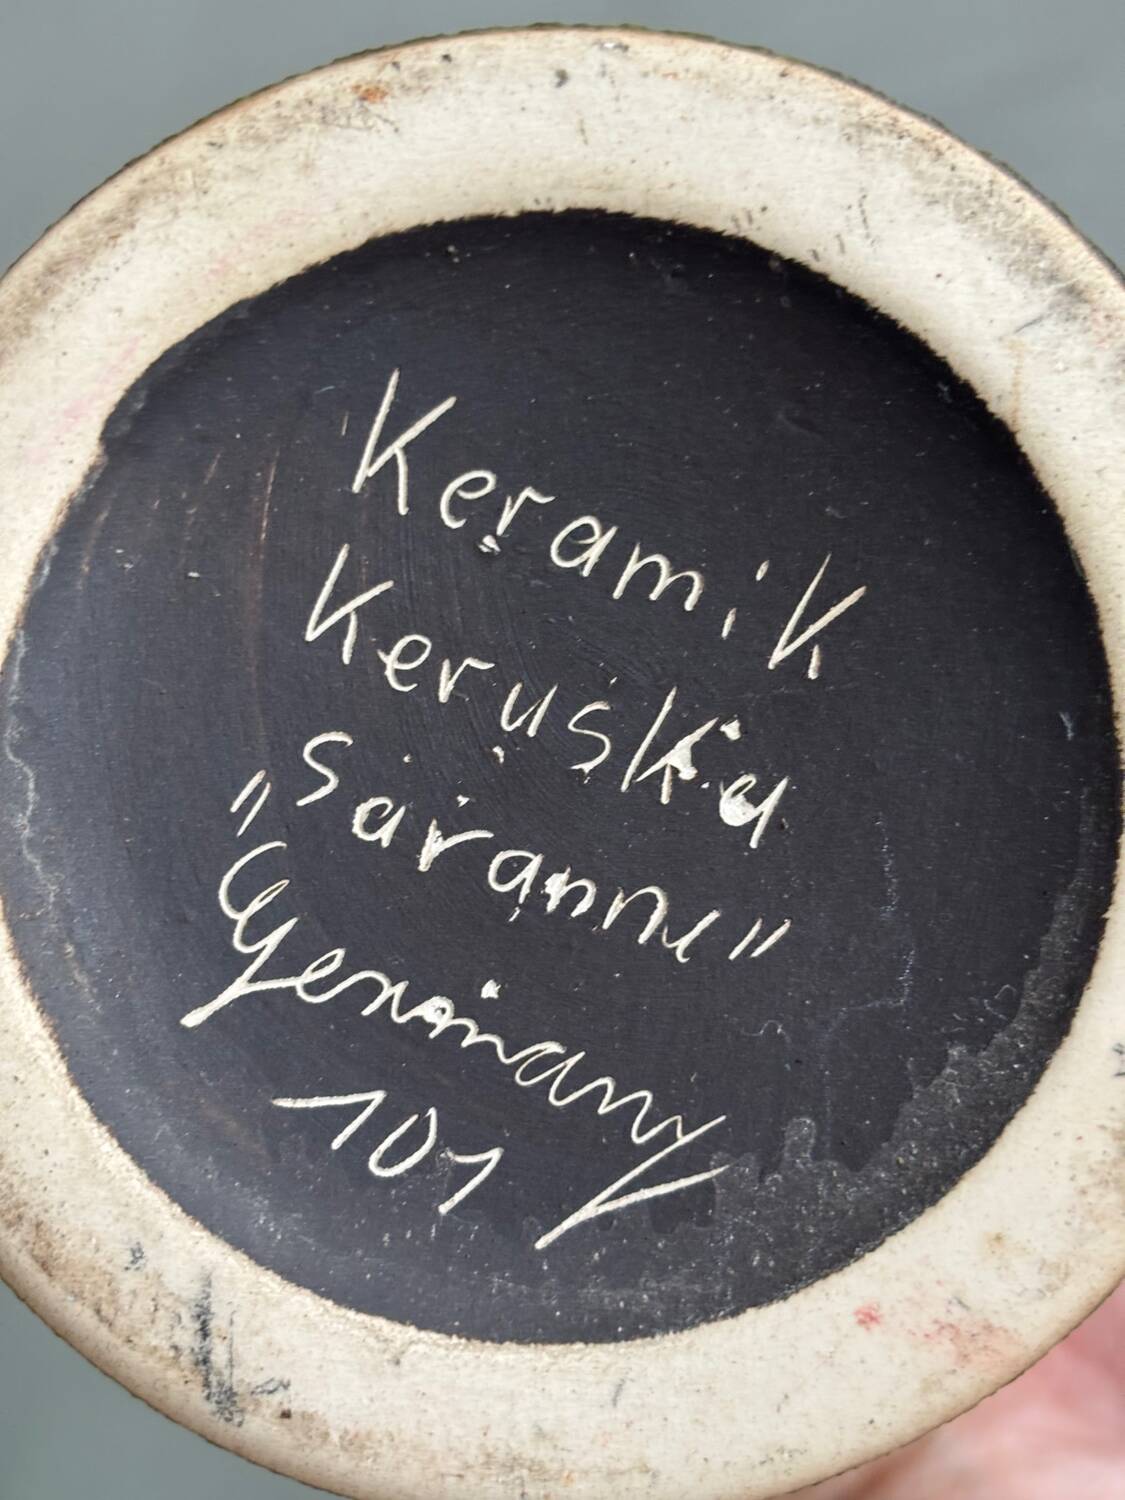 Keramik
Keruska
„Saranne"
Germany
101